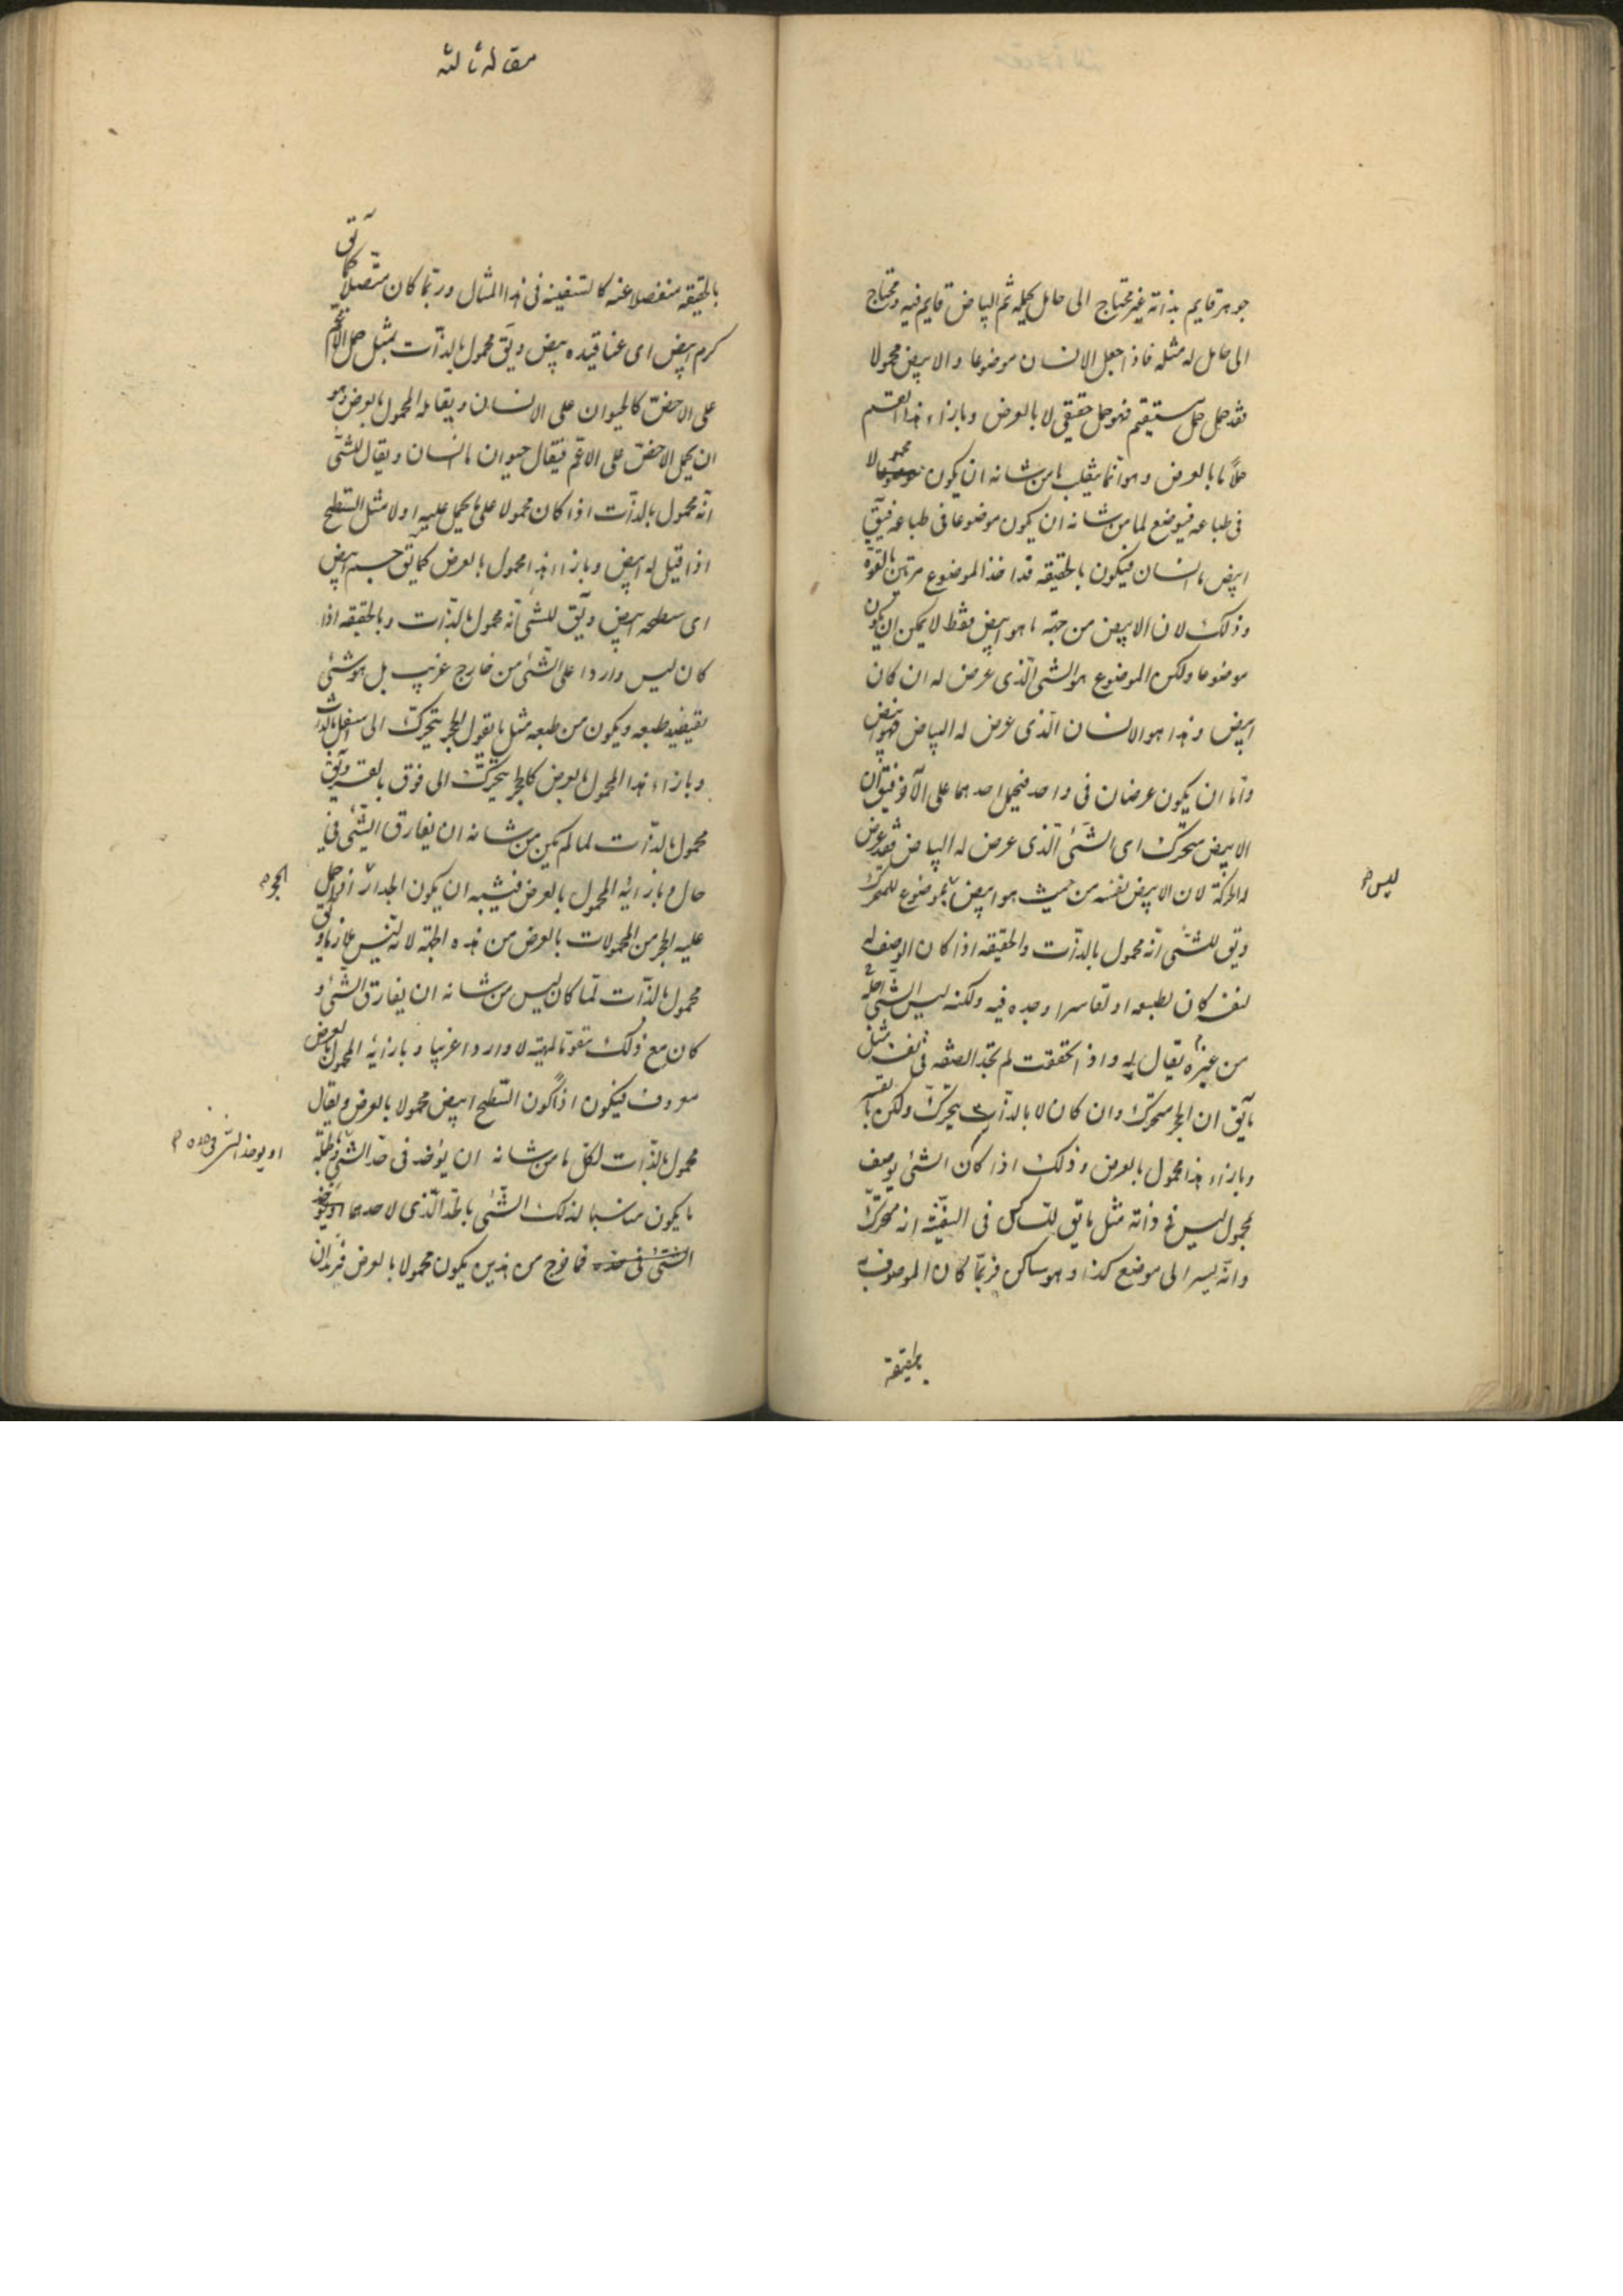 جوهر قايم بذاته غير محتاج الى حامل يحمله ثم البياض قايم فيه ومحتاج
الى حامل له مثله فاذا جعل الانسان موضوعا والابيض محمولا
فقد حمل حمل مستقيم فهو حمل حقيقى لا بالعرض وبازاء هذا القسم
حملا ما بالعرض وهو انما يقلب ما من شانه ان يكون محمولا
فى طباعه فيوضع لما من شانه ان يكون موضوعا فى طباعه فيق
ابيض ما انسان فيكون بالحقيقه قد اخذ الموضوع مرتين بالقوة
وذلك لان الابيض من جهة ما هو ابيض فقط لا يمكن ان يكون
موضوعا ولكن الموضوع هو الشى الذى عرض له ان كان
ابيض وهذا هو الانسان الذى عرض له البياض فهو ابيض
واما ان يكون عرضان فى واحد فيحمل احدهما على الآخر فيق ان
الابيض متحرك اى الشئ الذى عرض له البياض فقد عرض
له الحركة لان الابيض نفسه من حيث هو ابيض بموضوع للمتحرك
ليس
ويق للشئ انه محمول بالذات والحقيقه اذا كان الوصف له
لنفسه كان لطبعه او لقاسر اوجده فيه ولكنه ليس الشئ
من غيره يقال له واذا تحققت لم تجد الصفه فى نفسه مثل
ما يق ان الحجر متحرك وان كان لا بالذات يتحرك ولكن بالقسر
وبازاء هذا محمول بالعرض وذلك اذا كان الشئ يوصف
بمحمول ليس فى ذاته مثل ما يق للساكن فى السفينة انه متحرك
وانه يسير الى موضع كذا وهو ساكن فربما كان الموصوف به
بالحقيقة
مقاله ثالثه
بالحقيقه منفصلا عنه كالسفينه فى هذا المثال وربما كان متصلا كما يق
كرم ابيض اى عناقيده بيض ويق محمول بالذات بمثل حمل الاعم
على الاخص كالحيوان على الانسان ويقابله المحمول بالعرض وهو
ان يحمل الاخص على الاعم فيقال حيوان ما انسان ويقال للشئ
انه محمول بالذات اذا كان محمولا على ما يحمل عليه اولا مثل السطح
اذا قيل له ابيض وبازاء هذا محمول بالعرض كما يق جسم ابيض
اى سطحه ابيض ويق للشئ انه محمول بالذات وبالحقيقه اذا
كان ليس واردا على الشئ من خارج غريب بل هو شئ
يقتضيه طبعه ويكون من طبعه مثل ما يقول الحجر يتحرك الى اسفل بالذات
وبازاء هذا المحمول بالعرض كالحجر يتحرك الى فوق بالقسر ويق
محمول بالذات لما لم يكن من شانه ان يفارق الشئ فى
حال وبازائه المحمول بالعرض فيشبه ان يكون الجدار اذا حمل
الحجر
عليه الحجر من المحمولات بالعرض من هذه الجهة لانه ليس ملازما ويق
محمول بالذات لما كان ليس من شانه ان يفارق الشئ و
كان مع ذلك مقوما لمهيته لا واردا غريبا وبازائه المحمول بالعرض
معروف فيكون اذا كون السطح ابيض محمولا بالعرض ويقال
محمول بالذات لكل ما من شانه ان يؤخذ فى حد الشئ
او يوخذ الشئ فى حده
ما يكون مناسبا لذلك الشئ بالحد الذى لاحدهما او يوخذ
الشئ فى حده فما خرج من هذين يكون محمولا بالعرض